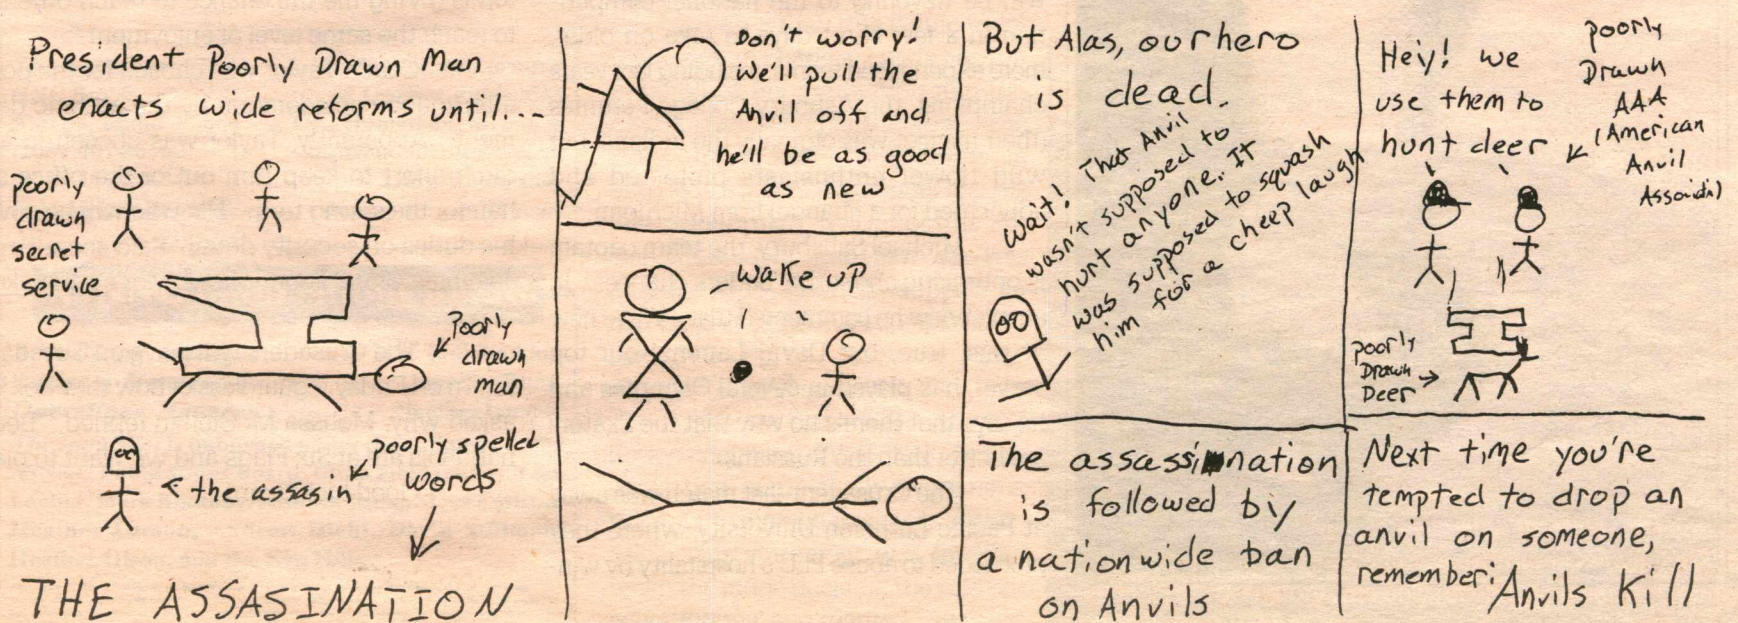 President Poorly Drawn Man
enacts wide reforms until...
poorly
drawn
secret
service
Poorly
drawn
man
poorly spelled
words
the assasin
THE ASSASINATION
Don't worry!
We'll pull the
Anvil off and
he'll be as good
as new
wake up
But Alas, our hero
is dead.
Wait! That Anvil
wasn't supposed to
hurt anyone. It
was supposed to squash
him for a cheep laugh
The assassination
is followed by
a nationwide ban
on Anvils
Hey! we
use them to
hunt deer
poorly
Drawn
AAA
(American
Anvil
poorly
Drawn
Deer
Next time you're
tempted to drop an
anvil on someone,
remember: Anvils Kill